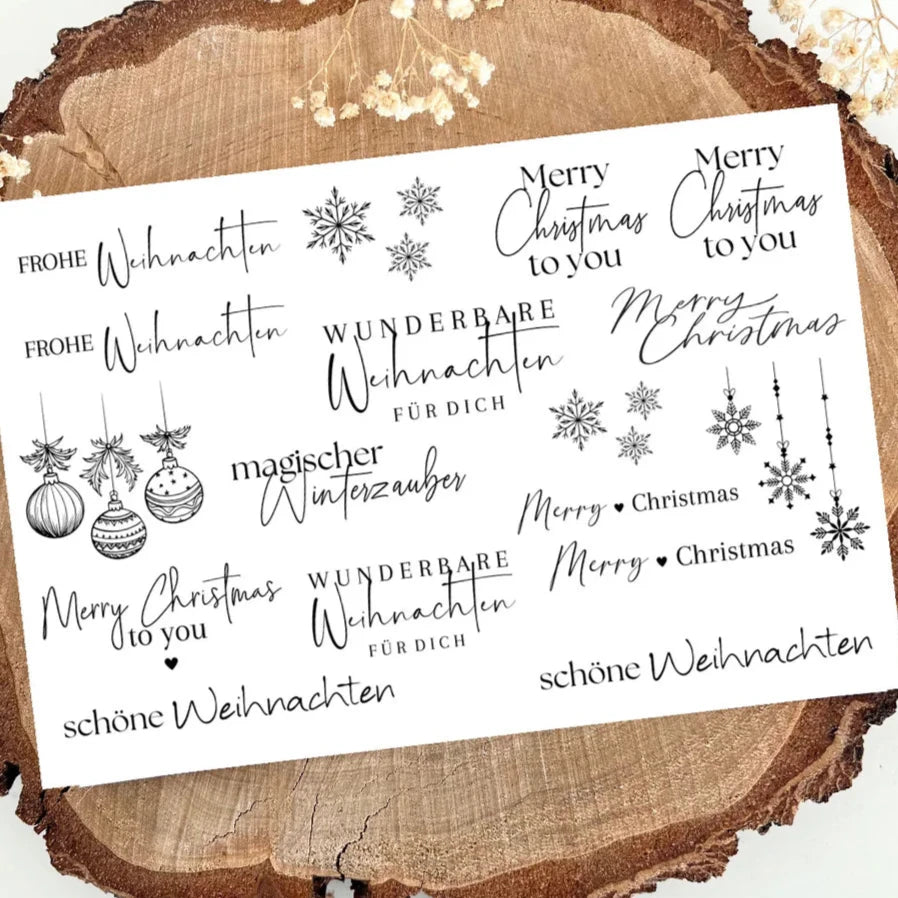 FROHE Weihnachten
Merry
Christmas
to you
Merry
Christmas
to you
FROHE Weihnachten
WUNDERBARE
Weihnachten
FÜR DICH
Merry
Christmas
magischer
Winterzauber
Merry ♥ Christmas
Merry ♥ Christmas
Merry Christmas
to you
♥
WUNDERBARE
Weihnachten
FÜR DICH
schöne Weihnachten
schöne Weihnachten